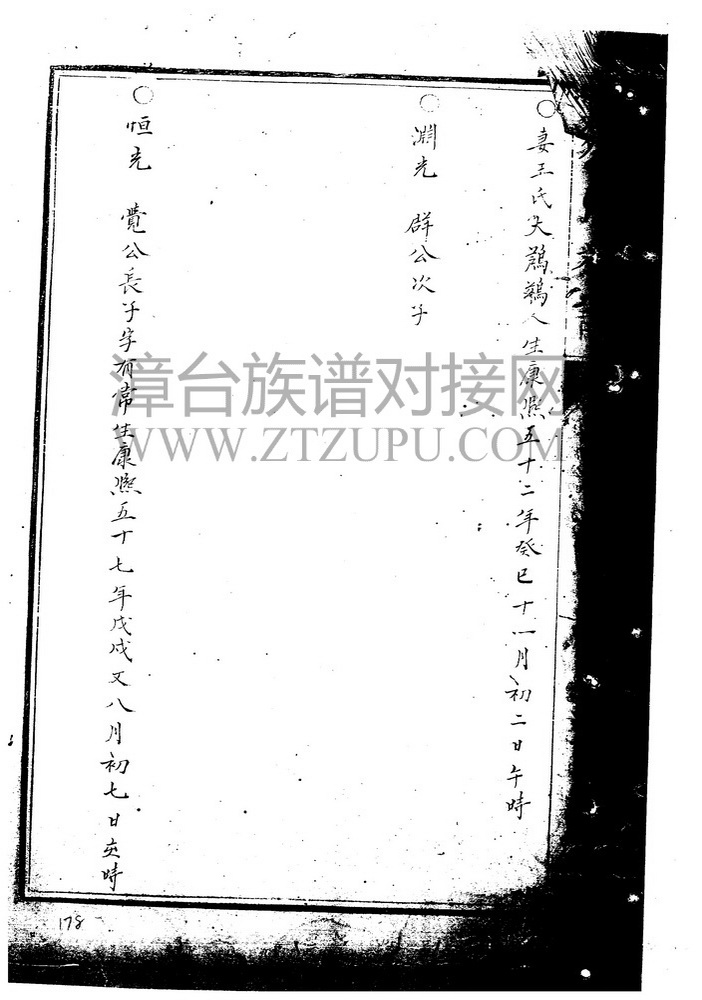 ○妻王氏 人生康熙五十二年癸巳十一月初二日午時
○淵光 群公次子
○恒光 覺公長子字有常生康熙五十七年戊戌又八月初七日亥時
漳台族谱对接网
WWW.ZTZUPU.COM
178